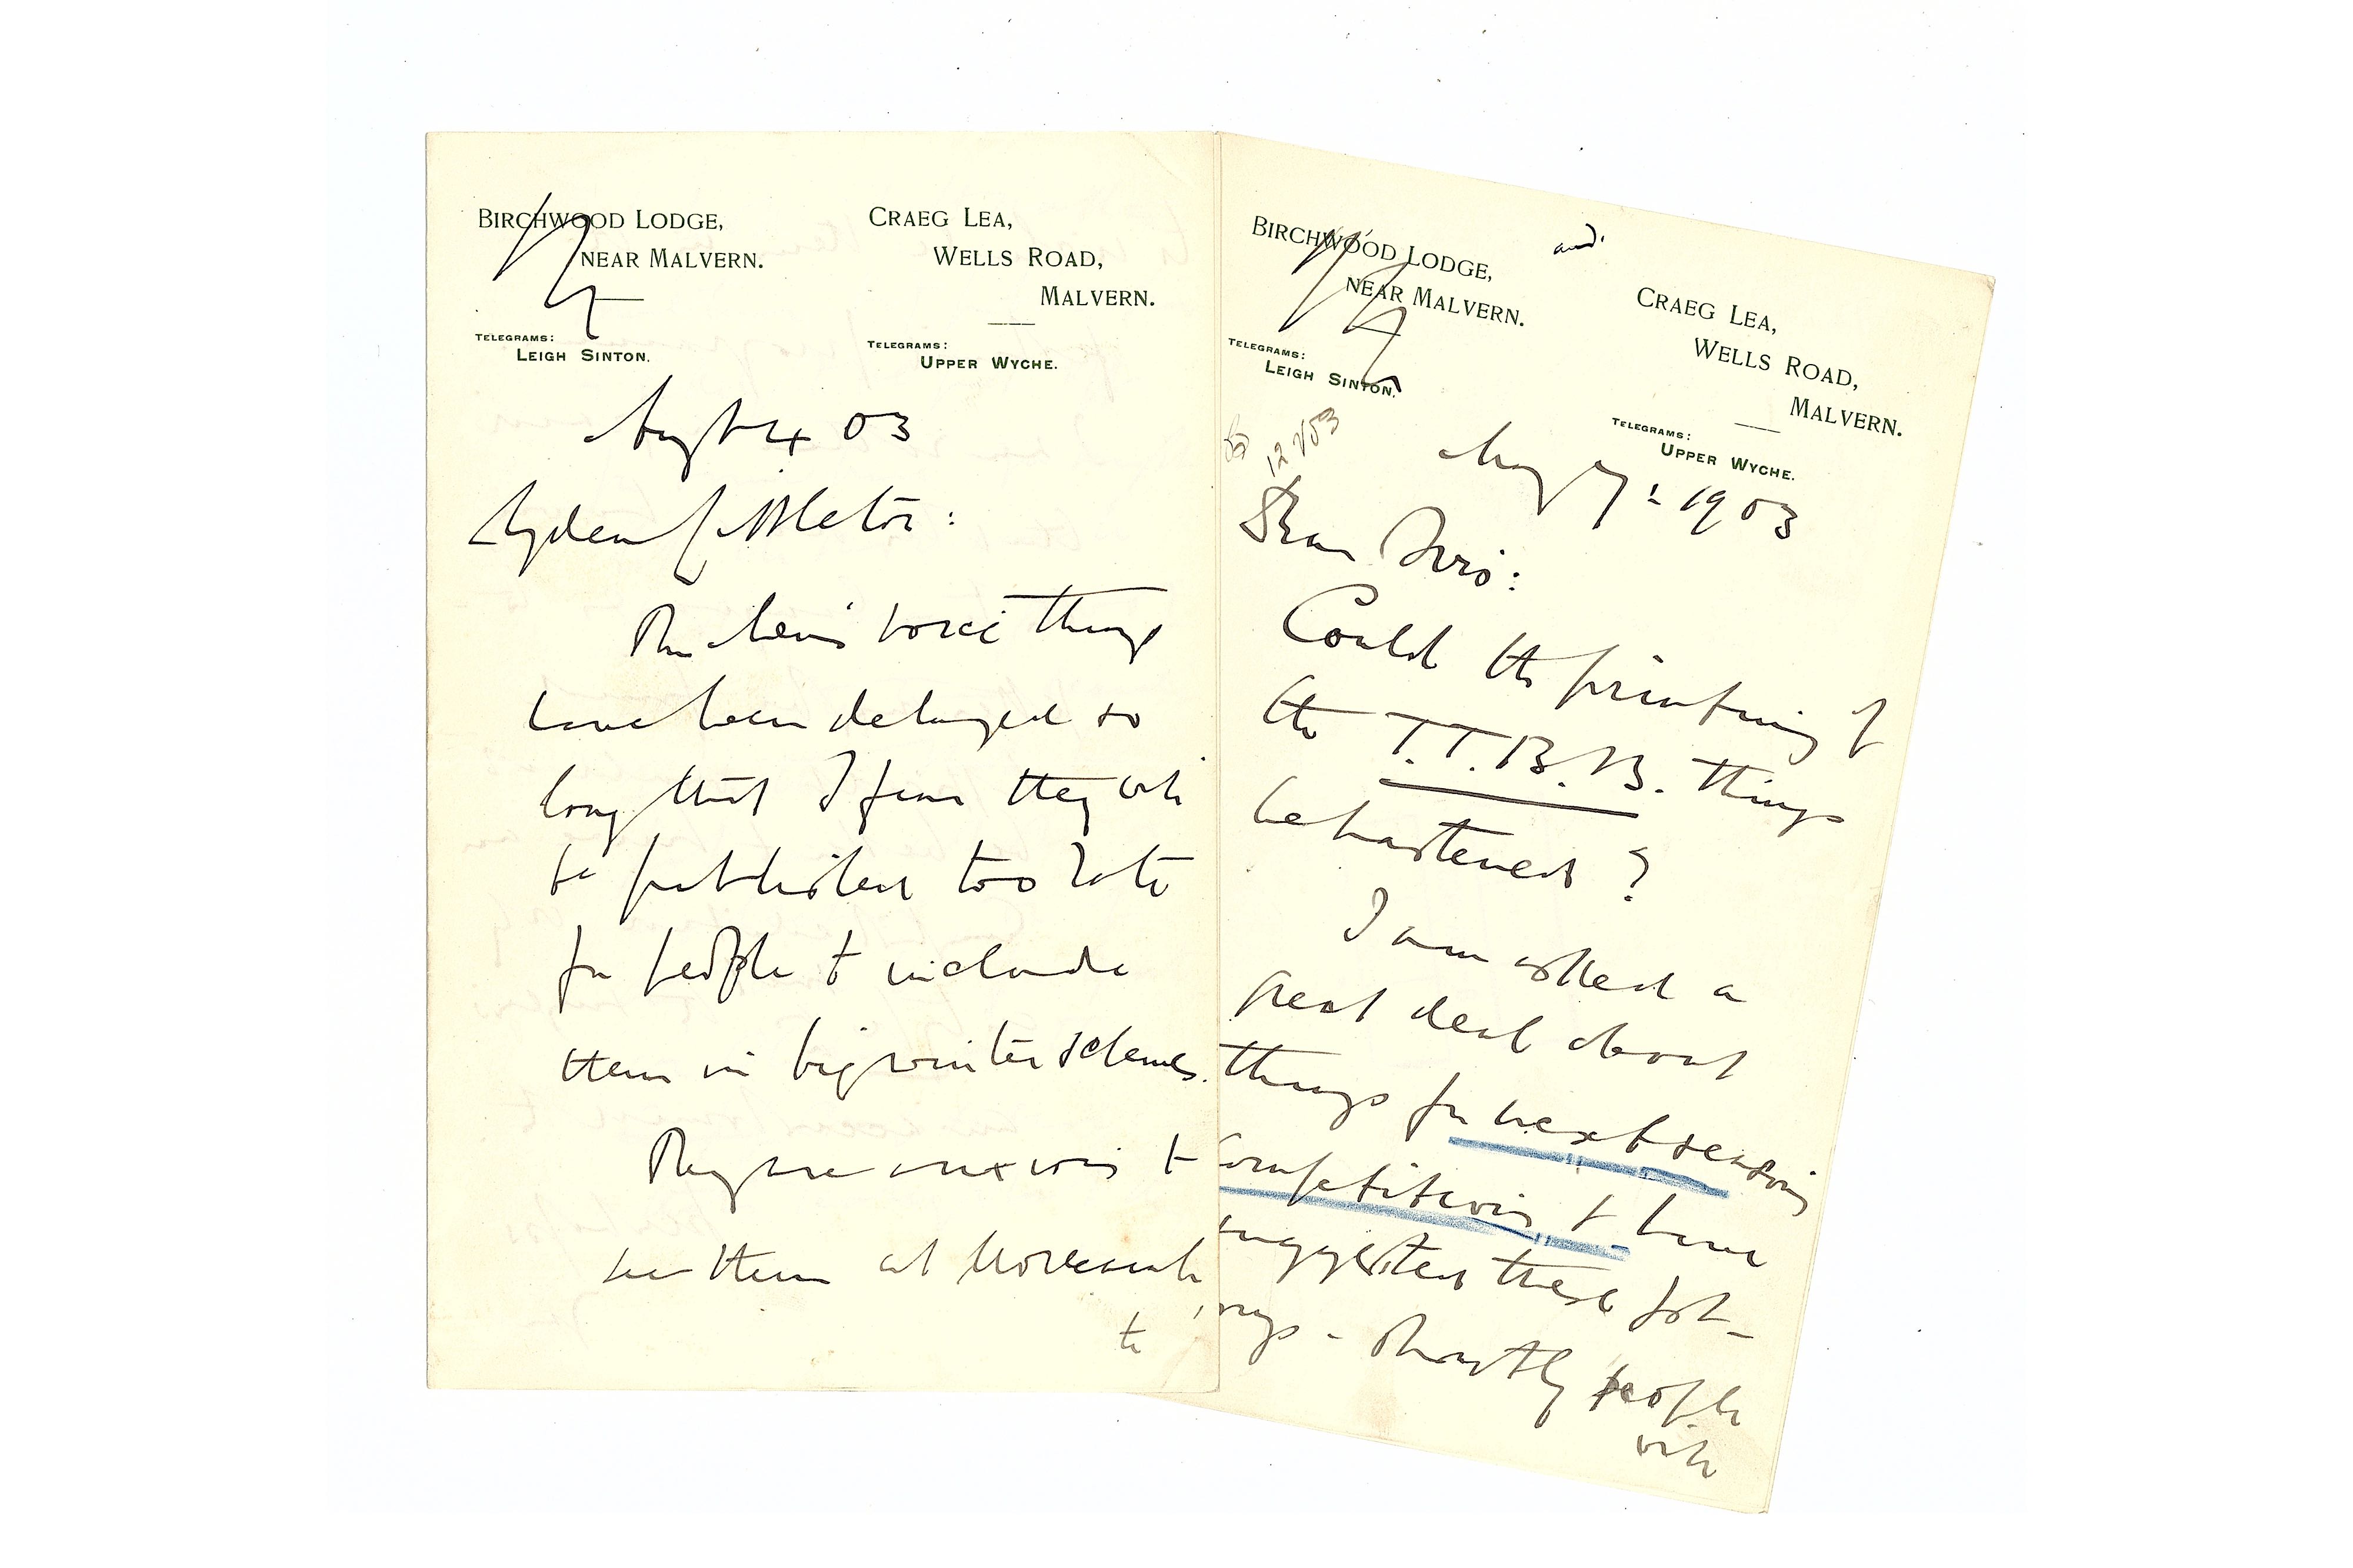 BIRCHWOOD LODGE,
NEAR MALVERN.
TELEGRAMS:
LEIGH SINTON.
CRAEG LEA,
WELLS ROAD,
MALVERN.
TELEGRAMS:
UPPER WYCHE.
Augst 4 03
My dear Littleton:
The men's voice things
have been delayed so
long that I fear they will
be published too late
for people to include
them in big winter schemes.
They are anxious to
see them at Morecambe
to
BIRCHWOOD LODGE,
NEAR MALVERN.
TELEGRAMS:
LEIGH SINTON.
and
CRAEG LEA,
WELLS ROAD,
MALVERN.
TELEGRAMS:
UPPER WYCHE.
12 V 03
May 7: 1903
Dear Sirs:
Could the printing of
the T.T.B.B. things
be hastened?
I am asked a
great deal about
things for next season's
Competitions & have
suggested these
- Shortly people
will